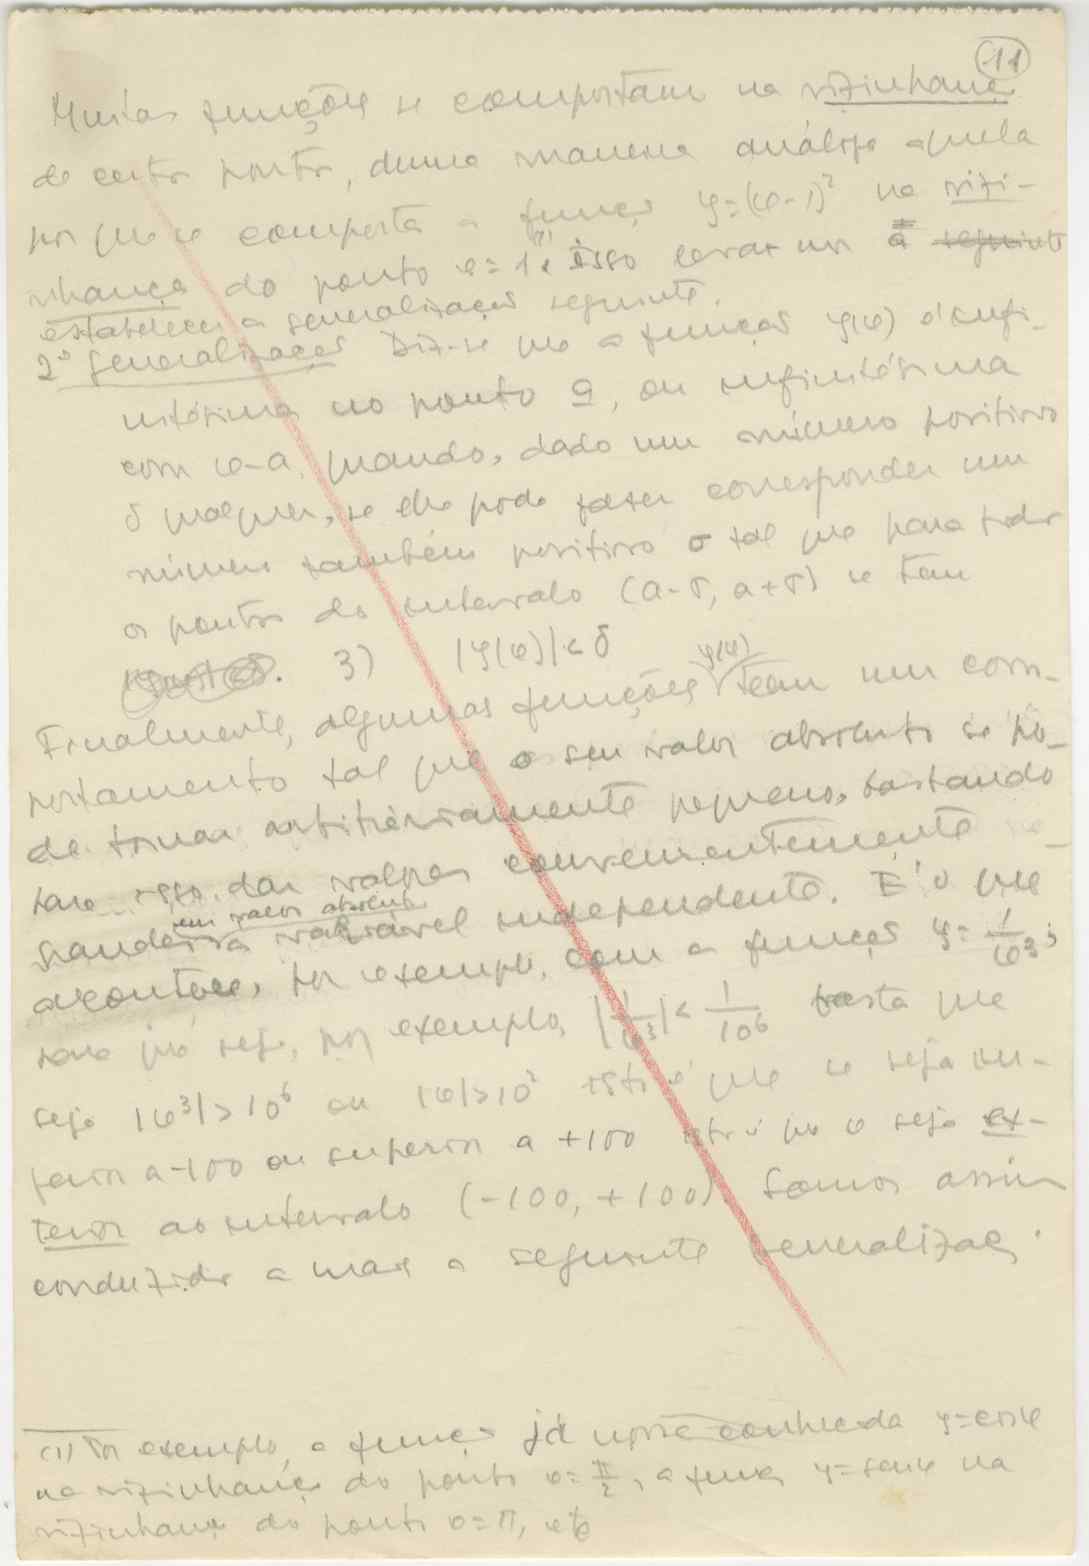 11
Muitas funções se comportam na vizinhança
de certo ponto, duma maneira análoga àquela
por que se comporta a função y=(x-1)² na vizi-
nhança do ponto x=1. (1) Isso levar-nos a seguinte
estabelecer a generalização seguinte.
2ª generalização Diz-se que a função y(x) é infi-
nitésima no ponto a, ou infinitésima
com x-a, quando, dado um número positivo
δ qualquer, se lhe pode fazer corresponder um
número também positivo σ tal que para todos
os pontos do intervalo (a-σ, a+σ) se tem
3) |y(x)|<δ
y(x)
Finalmente, algumas funções têm um com-
portamento tal que o seu valor absoluto se po-
de tornar arbitràriamente pequeno, bastando
para isso dar valores convenientemente
em valor absoluto
grandes à variável independente. É o que
acontece, por exemplo, com a função y=1/x³;
para que seja, por exemplo, |1/x³|<1/10⁶ basta que
seja |x³|>10⁶ ou |x|>10² isto é que x seja in-
ferior a -100 ou superior a +100 isto é que x seja ex-
terior ao intervalo (-100, +100). Somos assim
conduzidos a mais a seguinte generalização.
(1) Por exemplo, a função já nossa conhecida y=cos x
na vizinhança do ponto x=π/2, a função y=sen x na
vizinhança do ponto x=π, etc